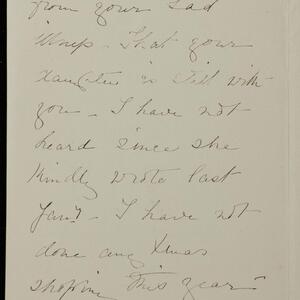 from your Sad
that your
daughter is still with
you - I have not
heard since she
kindly wrote last
Jany - I have not
done any Xmas
shoping this year -